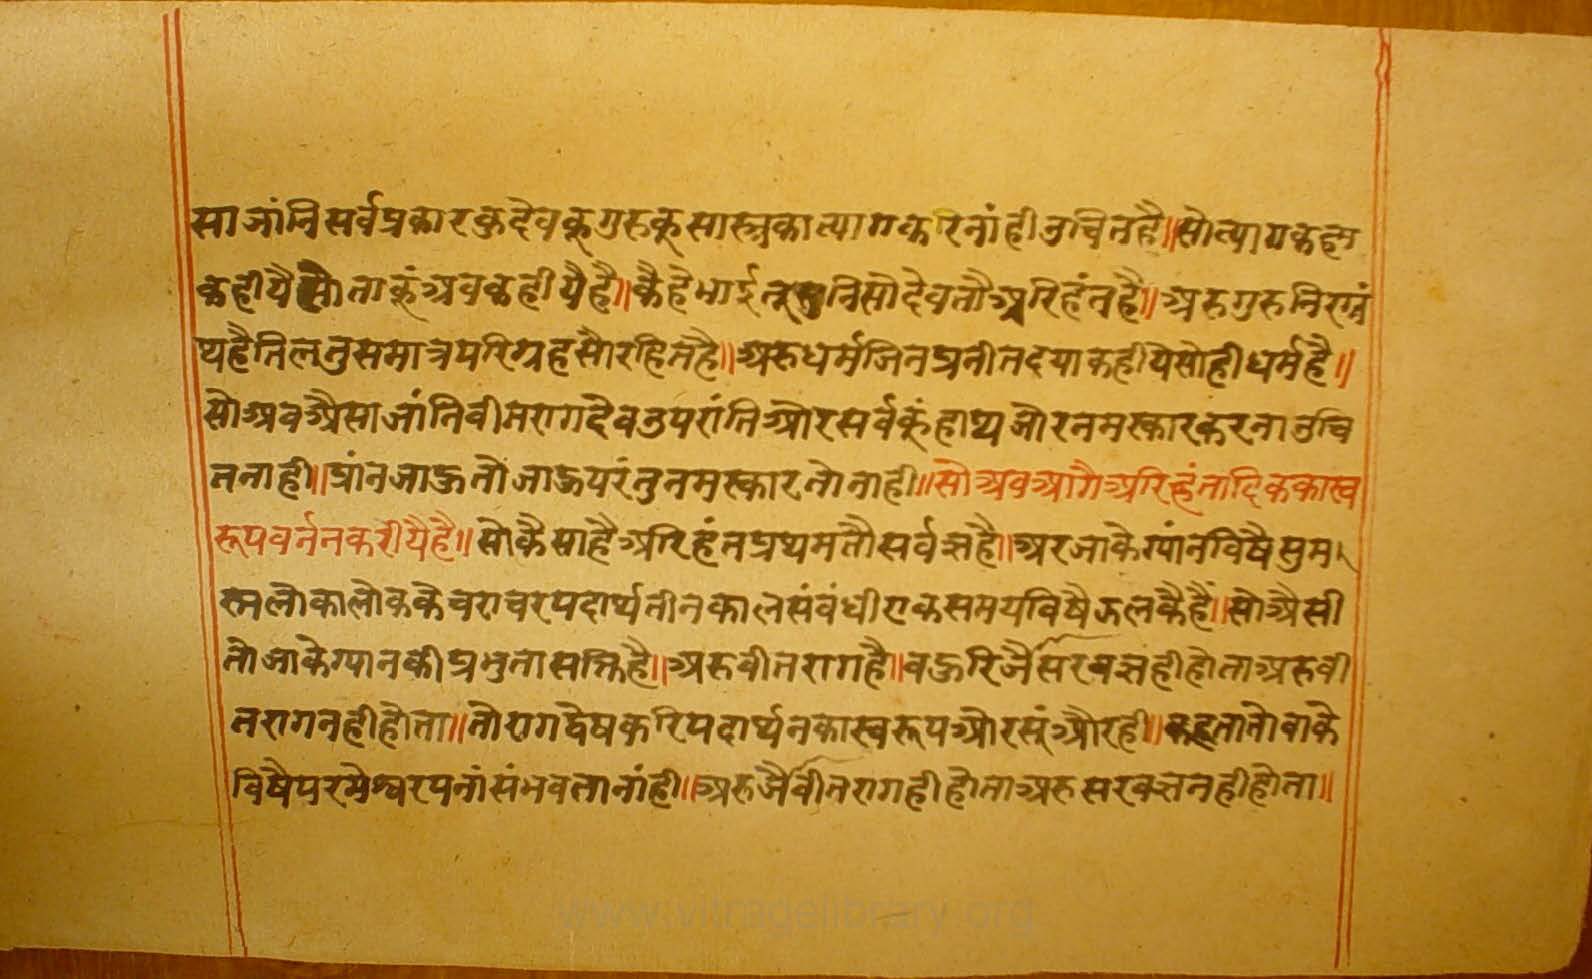 सा जांनि सर्व प्रकार कुदेव कुगुरु कुसास्त्र का त्याग करिनां ही उचित है॥ सो त्याग कहा
कहीयै सो ताकुं अव कहीयै है॥ कै हे भाई तू सुनि सो देव तौ अरिहंत है॥ अरु गुरु निरग्रं
थ है तिलतुस मात्र परिग्रह सौ रहित है॥ अरु धर्म जिनप्रनीत दया कहीये सो ही धर्म है॥
सो अव अैसा जांनि वीतराग देव उपरांति और सर्व कुं हाथ जोर नमस्कार करना उचि
त नाही॥ प्रांन जाऊ तो जाऊ परंतु नमस्कार तो नाही॥ सो अव आगै अरिहंतादिक का स्व
रूप वर्नन करीयै है॥ सो कैसा है अरिहंत प्रथम तौ सर्वज्ञ है॥ अर जाके ग्यांन विषै सम
स्त लोकालोक के चराचर पदार्थ तीन काल संवंधी एक समय विषै झलकै हैं॥ सो अैसी
तो जाके ग्यान की प्रभुता सक्ति है॥ अरु वीतराग है॥ वऊरि जै सरवज्ञ ही होता अरु वी
तराग नही होता॥ तो राग द्वेष करि पदार्थन का स्वरूप और सूं और ही॥ कहता तो वाके
विषै परमेश्वरपनां संभवता नांही॥ अरु जै वीतराग ही होता अरु सरवज्ञ नही होता॥
www.vitragelibrary.org